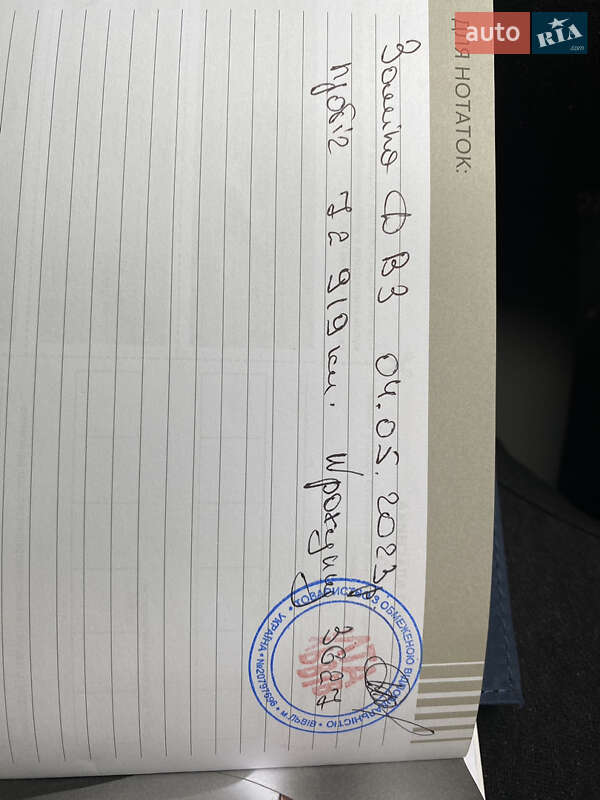 auto RIA .com
ДЛЯ НОТАТОК:
Заміна ФВЗ 04.05.2023р.
пробіг 72919 км. 3627
ТОВАРИСТВО З ОБМЕЖЕНОЮ ВІДПОВІДАЛЬНІСТЮ
УКРАЇНА • №20797696 • м.ЛЬВІВ